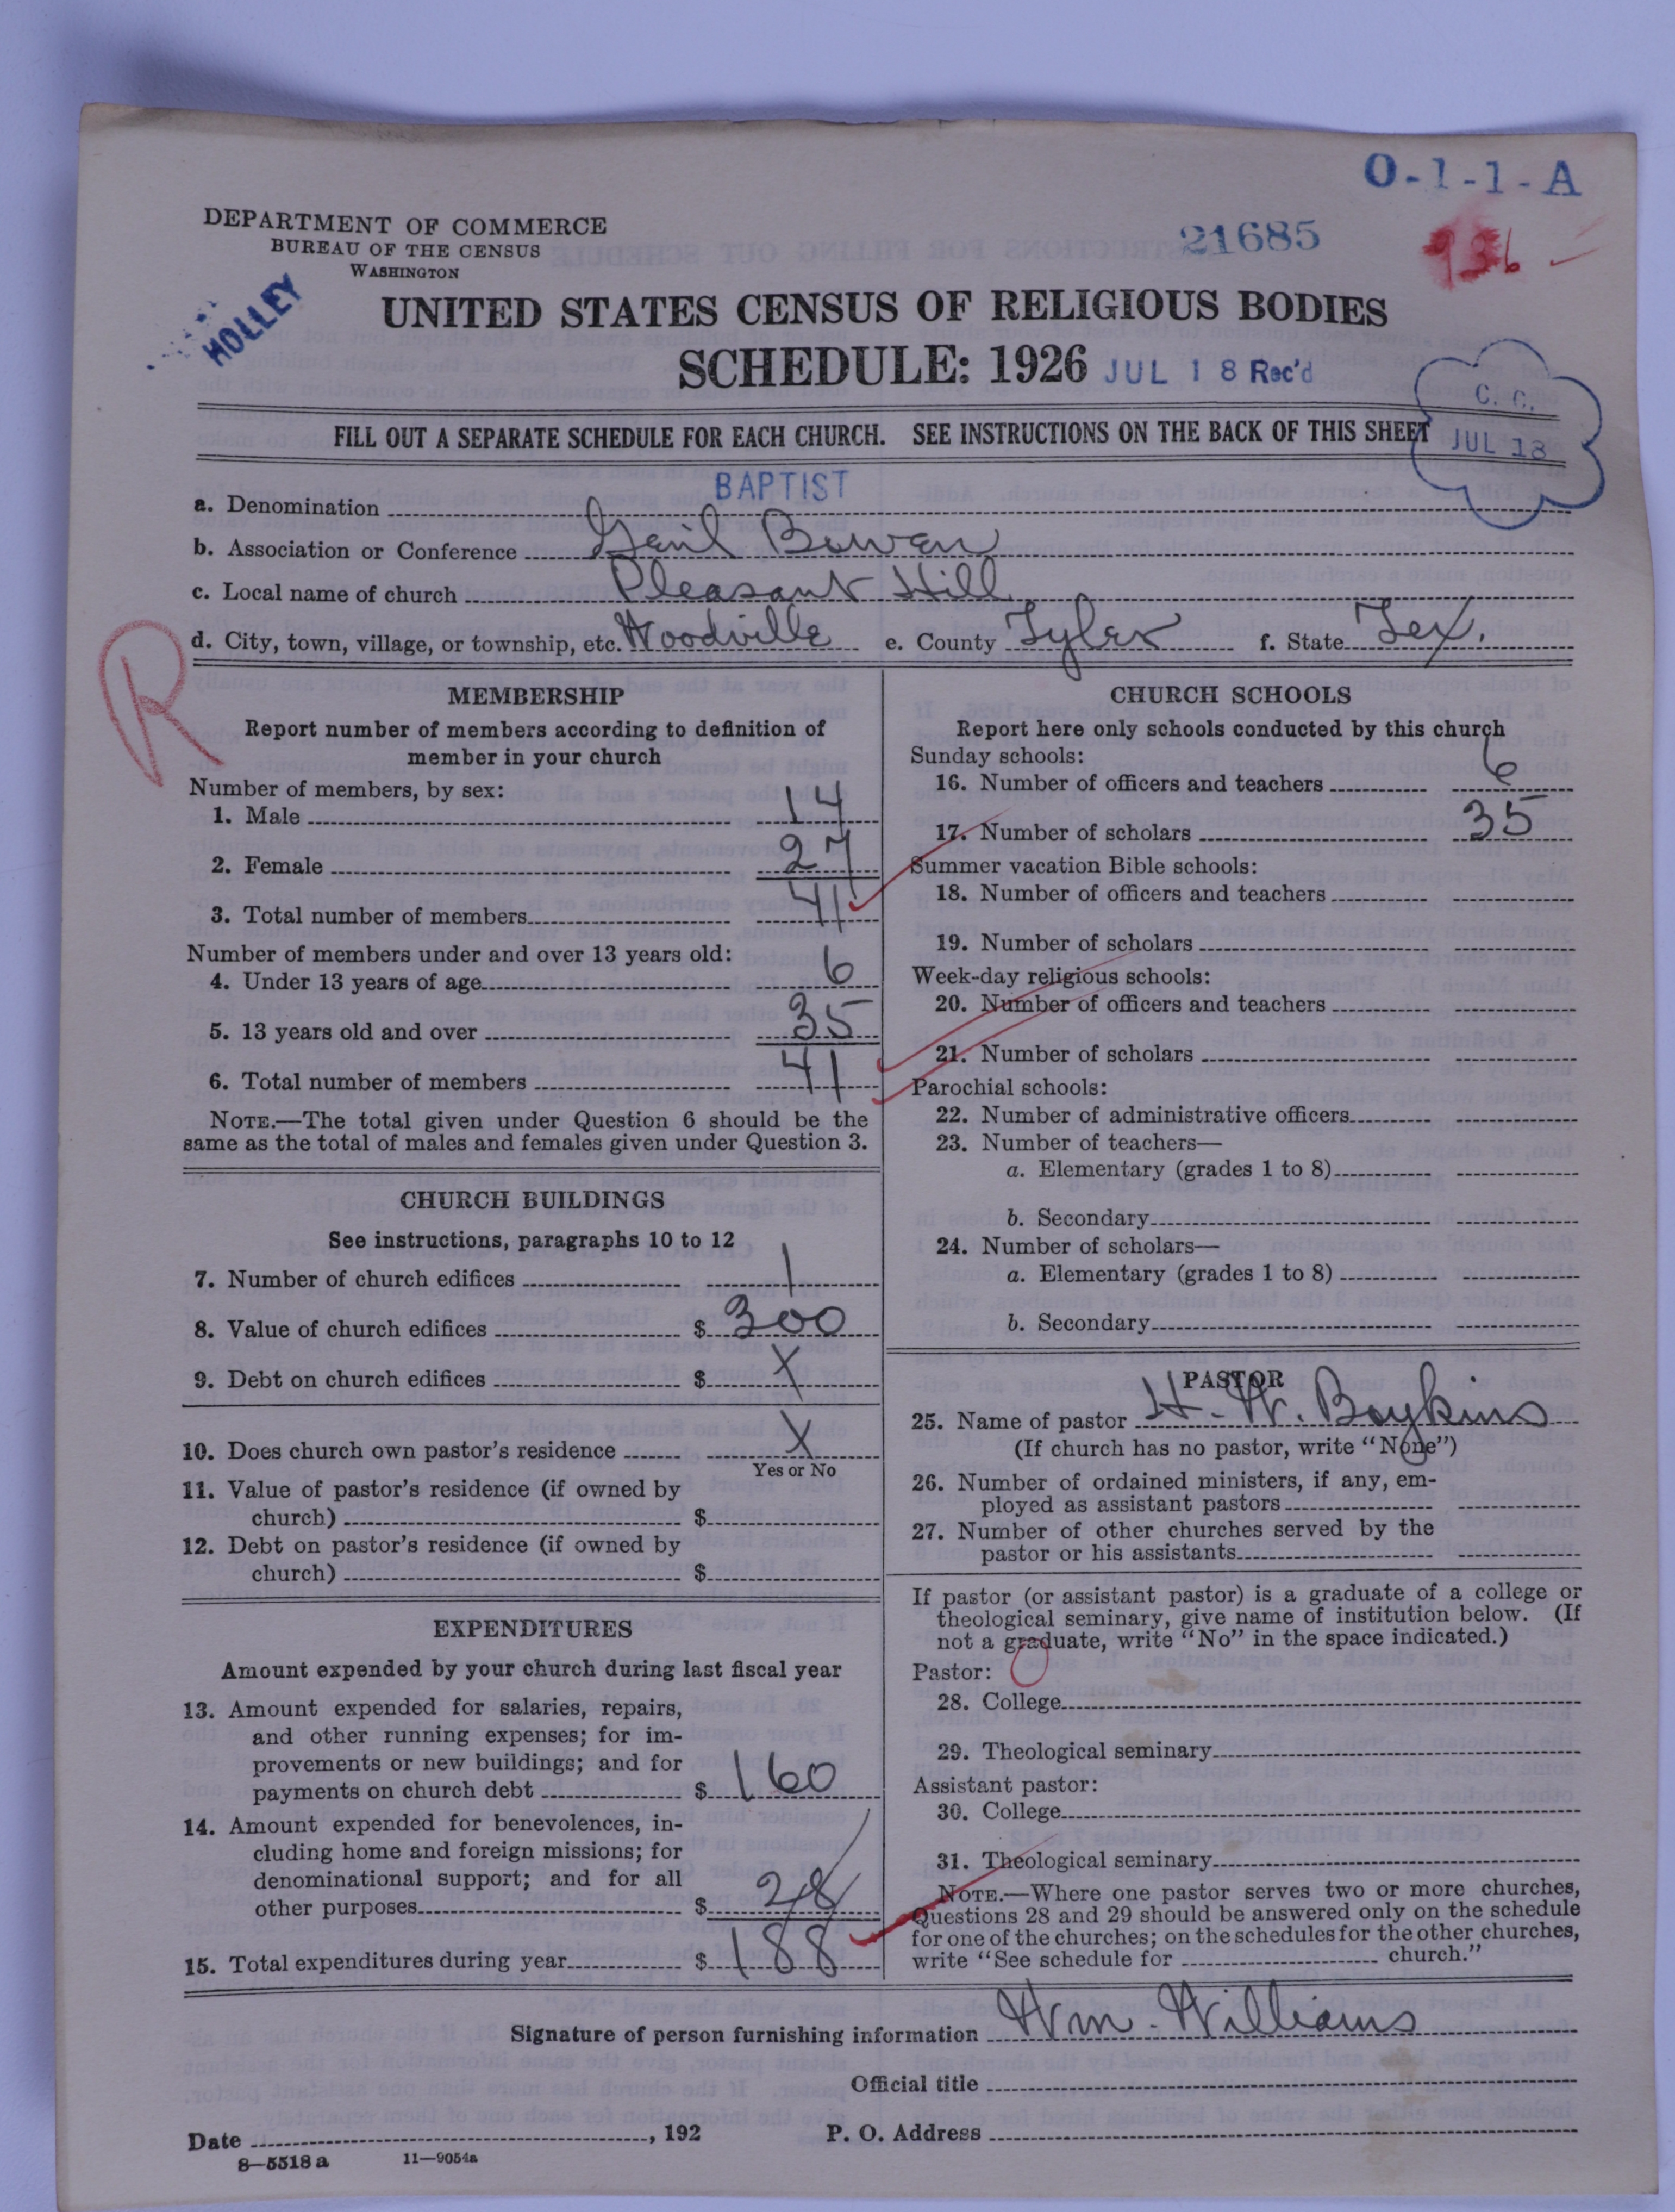 O-1-1-A
DEPARTMENT OF COMMERCE
BUREAU OF THE CENSUS
WASHINGTON
21685
936
HOLLEY
UNITED STATES CENSUS OF RELIGIOUS BODIES
SCHEDULE: 1926 JUL 18 Rec'd
C. C.
JUL 18
FILL OUT A SEPARATE SCHEDULE FOR EACH CHURCH. SEE INSTRUCTIONS ON THE BACK OF THIS SHEET
a. Denomination BAPTIST
b. Association or Conference Bowen
c. Local name of church Pleasant Hill
d. City, town, village, or township, etc. Woodville e. County Tyler f. State Tex.
R
MEMBERSHIP
Report number of members according to definition of
member in your church
Number of members, by sex:
1. Male 14
2. Female 27
3. Total number of members 41
Number of members under and over 13 years old:
4. Under 13 years of age 6
5. 13 years old and over 35
6. Total number of members 41
NOTE.—The total given under Question 6 should be the
same as the total of males and females given under Question 3.
CHURCH BUILDINGS
See instructions, paragraphs 10 to 12
7. Number of church edifices 1
8. Value of church edifices $ 300
9. Debt on church edifices $ X
10. Does church own pastor's residence X
Yes or No
11. Value of pastor's residence (if owned by
church) $
12. Debt on pastor's residence (if owned by
church) $
EXPENDITURES
Amount expended by your church during last fiscal year
13. Amount expended for salaries, repairs,
and other running expenses; for im-
provements or new buildings; and for
payments on church debt $ 160
14. Amount expended for benevolences, in-
cluding home and foreign missions; for
denominational support; and for all
other purposes $ 28
15. Total expenditures during year $ 188
CHURCH SCHOOLS
Report here only schools conducted by this church
Sunday schools:
16. Number of officers and teachers 6
17. Number of scholars 35
Summer vacation Bible schools:
18. Number of officers and teachers
19. Number of scholars
Week-day religious schools:
20. Number of officers and teachers
21. Number of scholars
Parochial schools:
22. Number of administrative officers
23. Number of teachers—
a. Elementary (grades 1 to 8)
b. Secondary
24. Number of scholars—
a. Elementary (grades 1 to 8)
b. Secondary
PASTOR
25. Name of pastor H. W. Boykins
(If church has no pastor, write "None")
26. Number of ordained ministers, if any, em-
ployed as assistant pastors
27. Number of other churches served by the
pastor or his assistants
If pastor (or assistant pastor) is a graduate of a college or
theological seminary, give name of institution below. (If
not a graduate, write "No" in the space indicated.)
Pastor: O
28. College
29. Theological seminary
Assistant pastor:
30. College
31. Theological seminary
NOTE.—Where one pastor serves two or more churches,
Questions 28 and 29 should be answered only on the schedule
for one of the churches; on the schedules for the other churches,
write "See schedule for church."
Signature of person furnishing information Wm. Williams
Official title
Date , 192 P. O. Address
8—5518 a 11—9054a